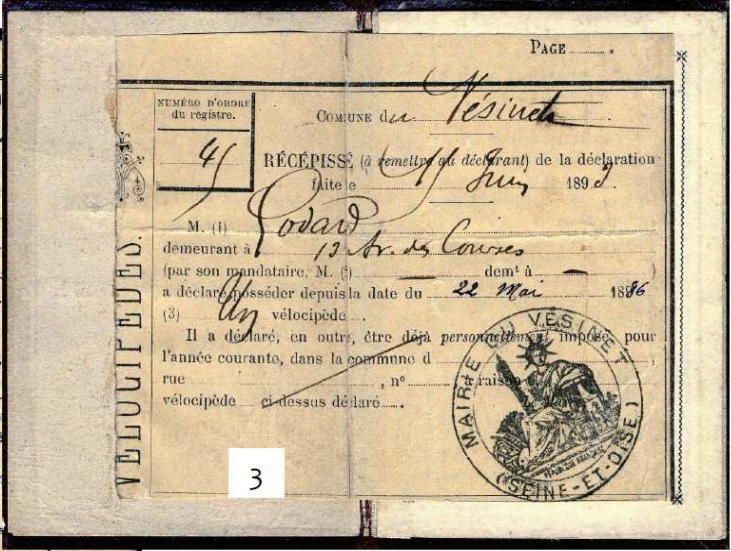 PAGE ........ .
NUMÉRO D'ORDRE
du registre.
COMMUNE du Vésinet
RÉCÉPISSÉ (à remettre au déclarant) de la déclaration
faite le 15 Juin 1893.
M. (1) Godard
demeurant à 13 Av. des Courses
(par son mandataire, M. (2) — demt à — )
a déclaré posséder depuis la date du 22 Mai 1886
(3) Un vélocipède
Il a déclaré, en outre, être déjà personnellement imposé, pour
l'année courante, dans la commune d ,
rue , n° , à raison d
vélocipède ci-dessus déclaré .
VÉLOCIPÈDES.
MAIRIE DU VÉSINET
(SEINE-ET-OISE)
3